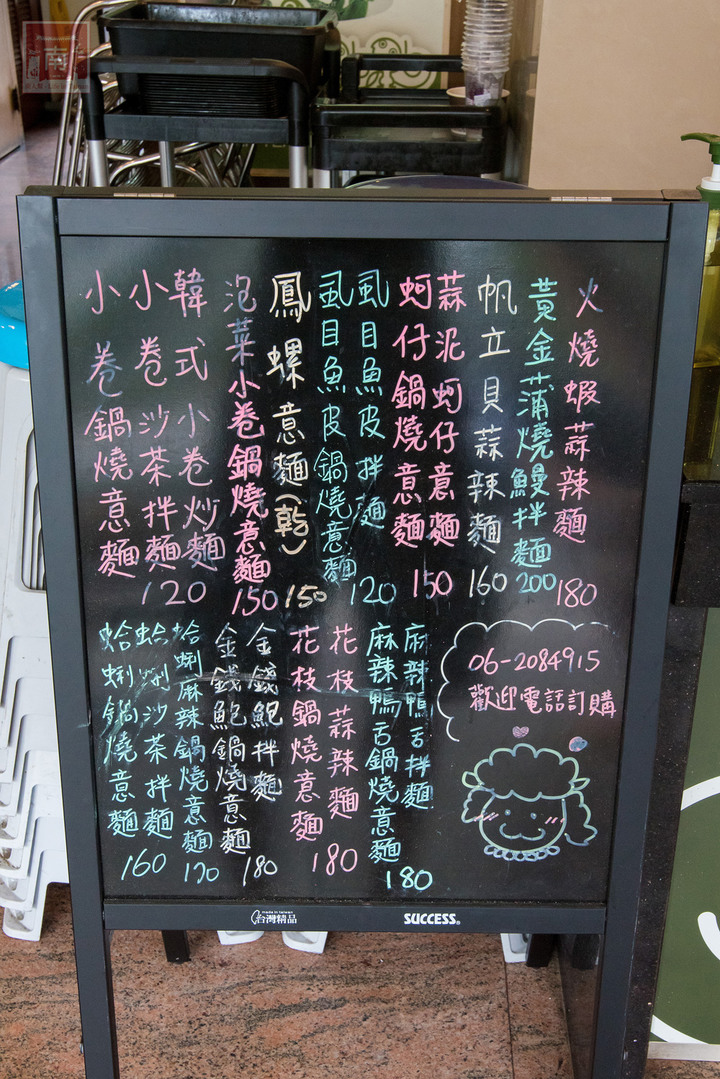 火燒蝦蒜辣麵
180
黃金蒲燒鰻拌麵
200
帆立貝蒜辣麵
160
蒜泥蚵仔意麵
蚵仔鍋燒意麵
150
虱目魚皮拌麵
虱目魚皮鍋燒意麵
120
鳳螺意麵(乾)
150
泡菜小卷鍋燒意麵
150
韓式小卷炒麵
小卷沙茶拌麵
小卷鍋燒意麵
120
06-2084915
歡迎電話訂購
麻辣鴨舌拌麵
麻辣鴨舌鍋燒意麵
180
花枝蒜辣麵
花枝鍋燒意麵
180
金錢鮑拌麵
金錢鮑鍋燒意麵
180
蛤蜊麻辣鍋燒意麵
120
蛤蜊沙茶拌麵
蛤蜊鍋燒意麵
160
made in taiwan
台灣精品
SUCCESS
南